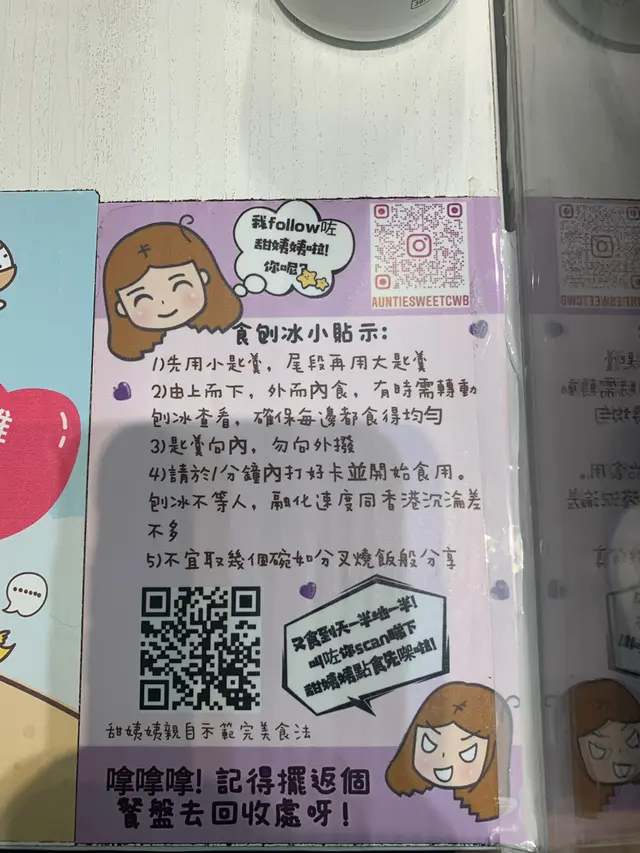 我follow咗
甜姨姨啦!
你呢?
AUNTIESWEETCWB
食刨冰小貼示:
1)先用小匙羹，尾段再用大匙羹
2)由上而下，外而內食，有時需轉動
刨冰查看，確保每邊都食得均勻
3)匙羹向內，勿向外撥
4)請於1分鐘內打好卡並開始食用。
刨冰不等人，融化速度同香港沉淪差
不多
5)不宜取幾個碗如分叉燒飯般分享
又食到天一半地一半!
叫咗你scan睇下
甜姨姨點食先㗎啦!
甜姨姨親自示範完美食法
嗱嗱嗱! 記得擺返個
餐盤去回收處呀!